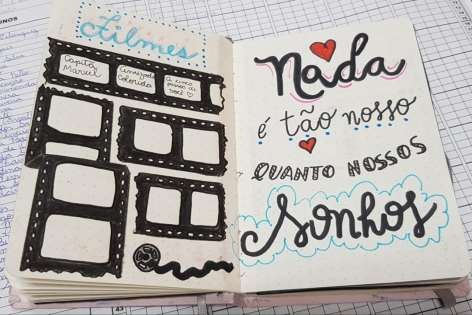 Filmes
Capitã
Marvel
Amizade
Colorida
A cinco
passos de
você
Nada
é tão nosso
QUANTO NOSSOS
Sonhos